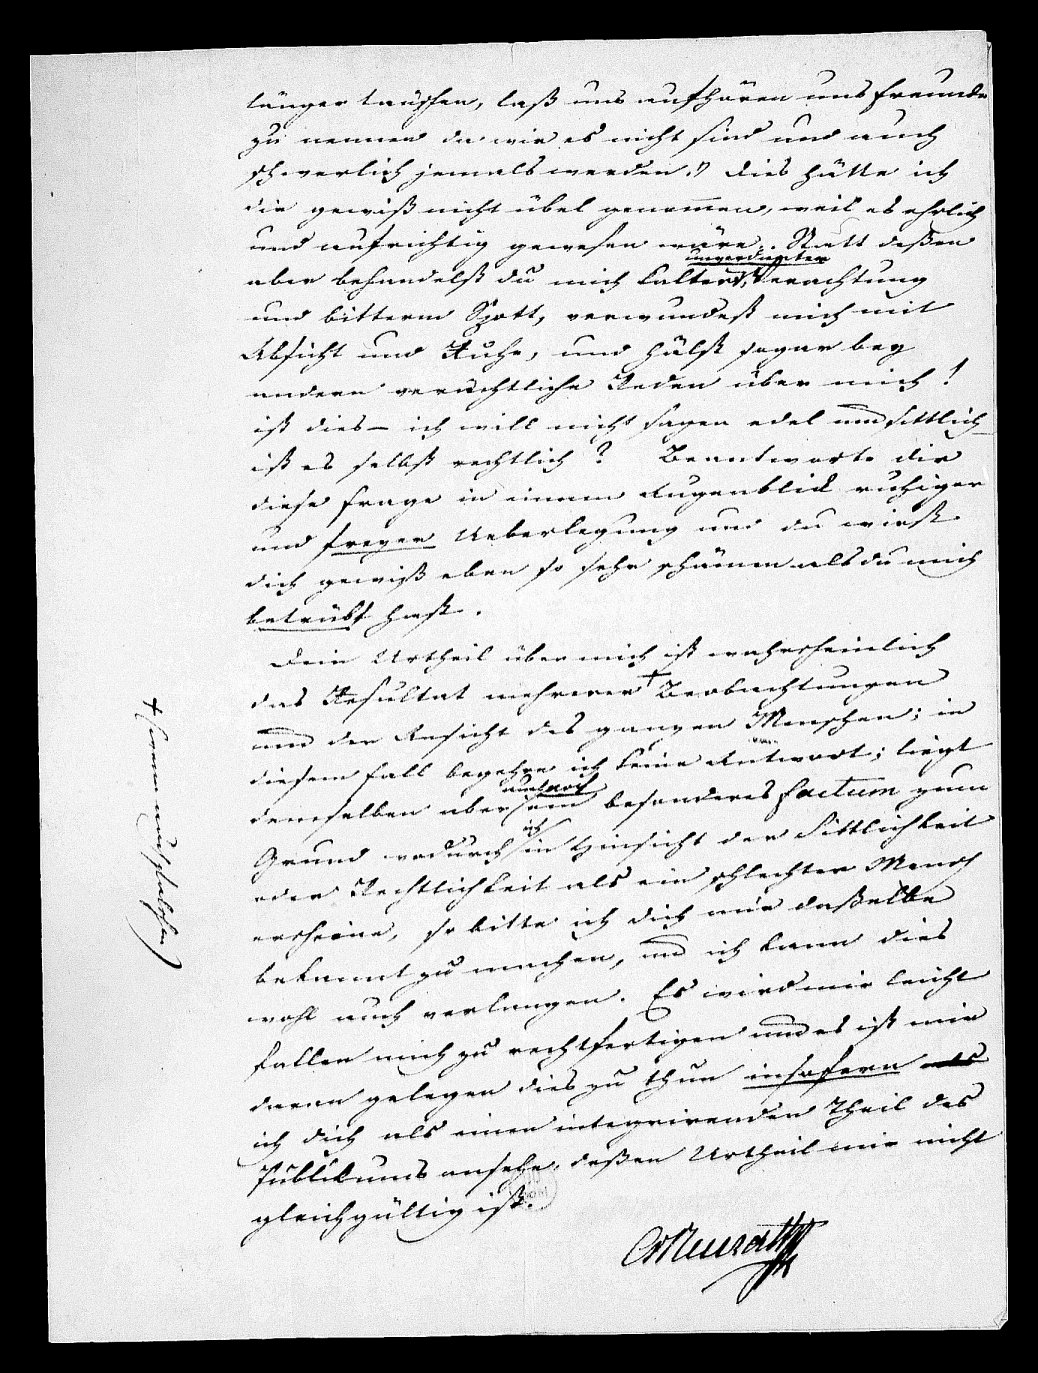 länger täuschen, laß uns aufhören uns Freunde
zu nennen da wir es nicht sind und auch
schwerlich jemals werden." Dies hätte ich
dir gewiß nicht übel genommen, weil es ehrlich
und aufrichtig gewesen wäre. Statt deßen
unverdienter
aber behandelst du mich kalter Verachtung
und bitterm Spott, verwundest mich mit
Absicht und Ruhe, und hälst sogar bey
andern verächtliche Reden über mich!
ist dies – ich will nicht sagen edel und sittlich –
ist es selbst rechtlich? Beantworte dir
diese Frage in einem Augenblick ruhiger
und freyer Ueberlegung und du wirst
dich gewiß eben so sehr schämen als du mich
betrübt hast.
Dein Urtheil über mich ist wahrscheinlich
das Resultat mehrerer + Beobachtungen
und der Ansicht des ganzen Menschen; in
diesem Fall begehre ich keine Antwort; liegt
auch noch
demselben aber ein besonderes factum zum
ich
Grund wodurch in Hinsicht der Sittlichkeit
oder Rechtlichkeit als ein schlechter Mensch
erscheine, so bitte ich dich mir daßelbe
bekannt zu machen, und ich kann dies
wohl auch verlangen. Es wird mir leicht
fallen mich zu rechtfertigen und es ist mir
daran gelegen dies zu thun insofern als
ich dich als einen integrirenden Theil des
Publikums ansehe, deßen Urtheil mir nicht
gleichgültig ist.
CvNeurath